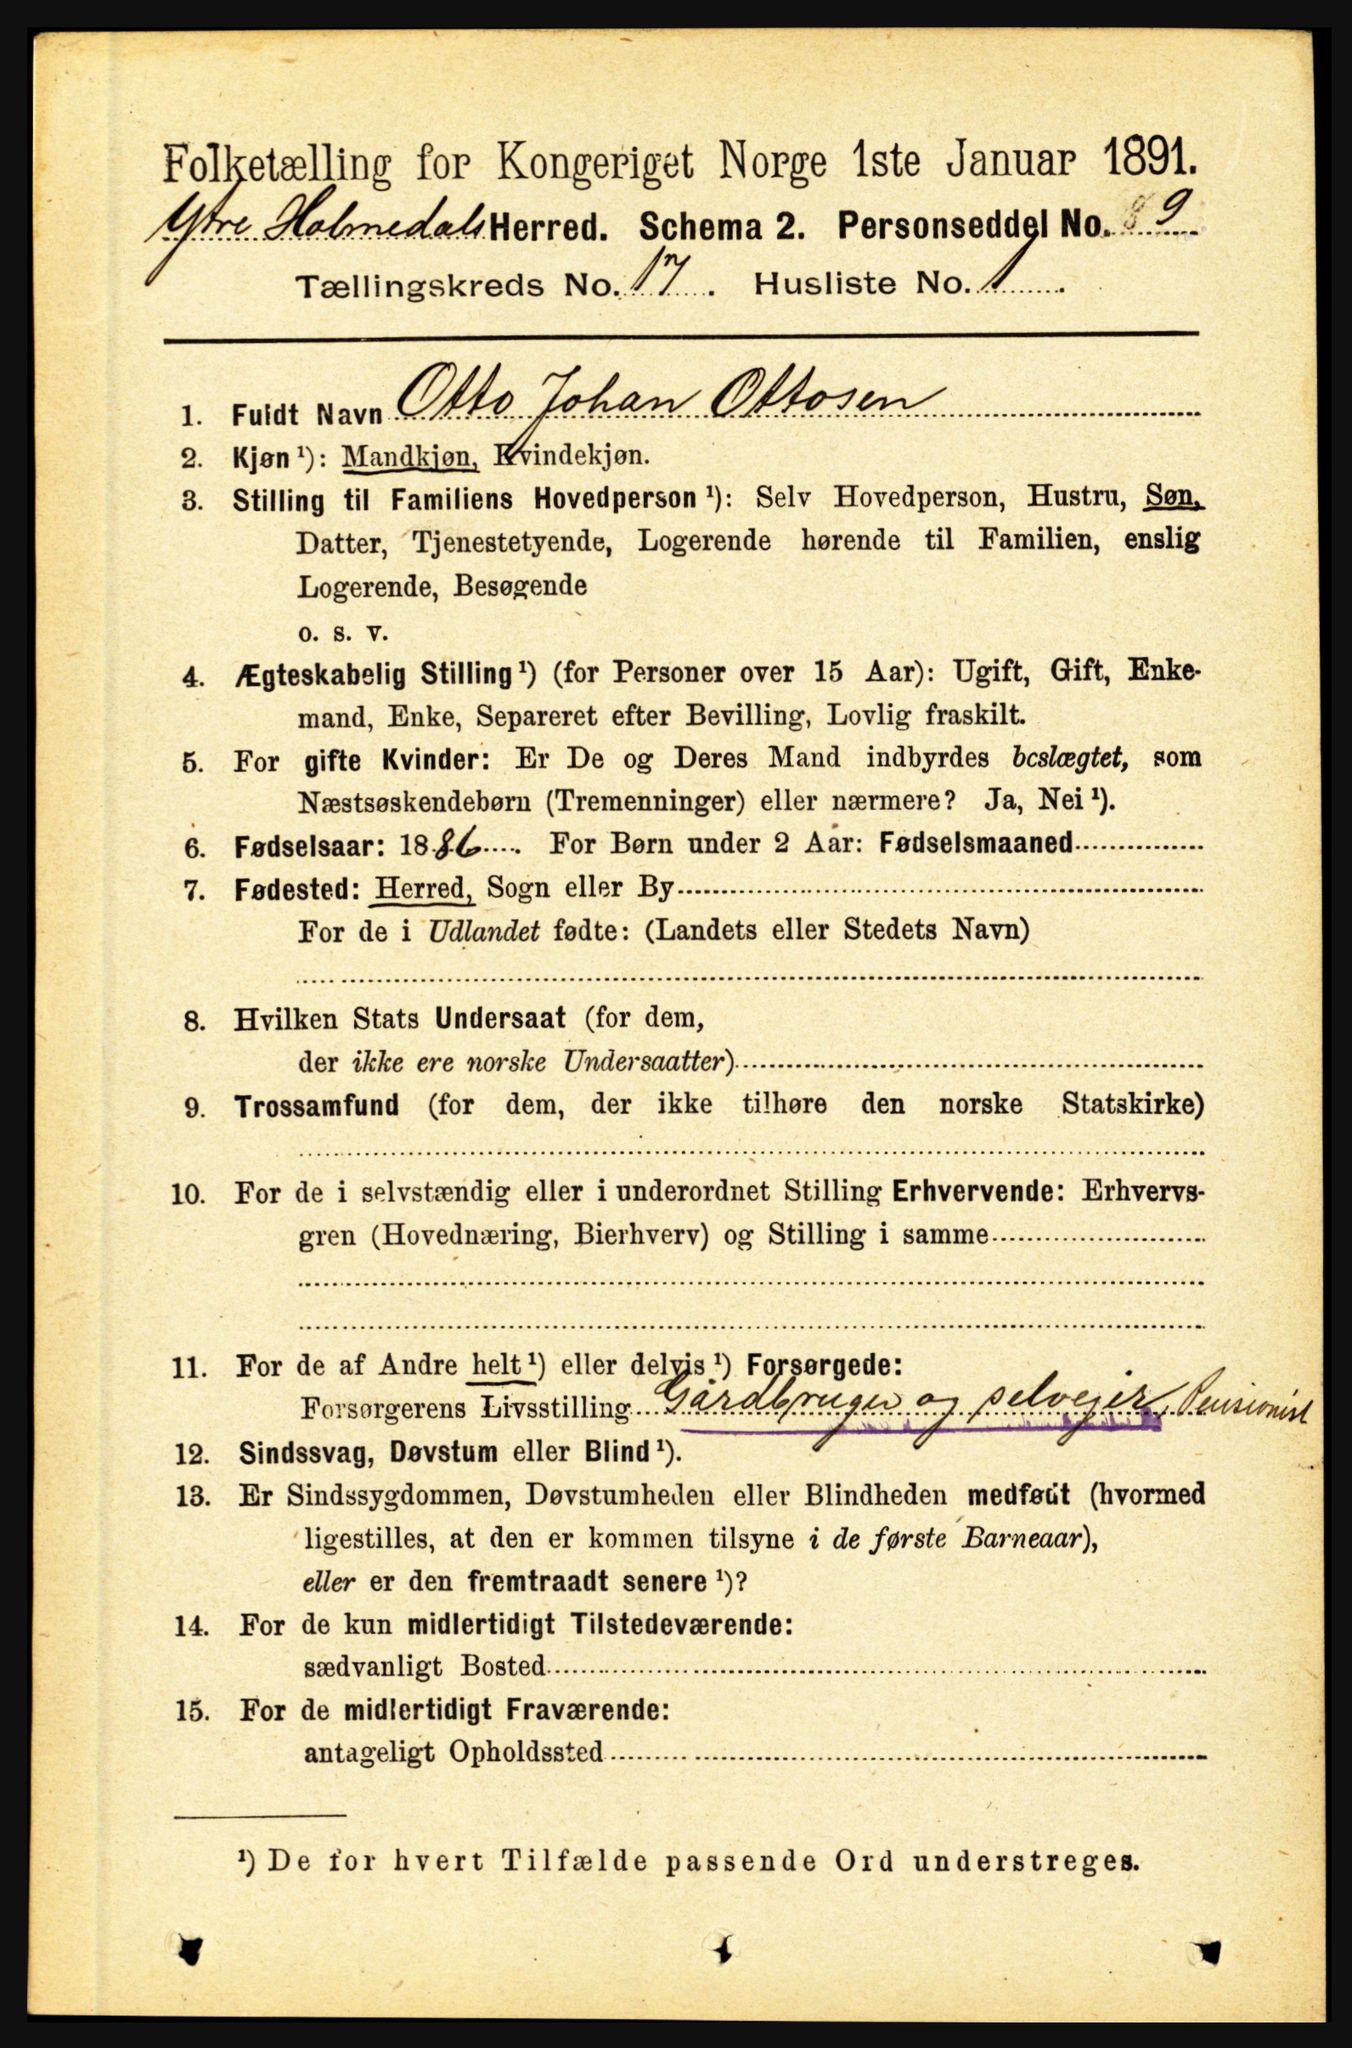 Folketælling for Kongeriget Norge 1ste Januar 1891.
Ytre Holmedals Herred. Schema 2. Personseddel No. 9
Tællingskreds No. 17. Husliste No. 1.
1. Fuldt Navn Otto Johan Ottosen
2. Kjøn ¹): Mandkjøn, Kvindekjøn.
3. Stilling til Familiens Hovedperson ¹): Selv Hovedperson, Hustru, Søn,
Datter, Tjenestetyende, Logerende hørende til Familien, enslig
Logerende, Besøgende
o. s. v.
4. Ægteskabelig Stilling ¹) (for Personer over 15 Aar): Ugift, Gift, Enke-
mand, Enke, Separeret efter Bevilling, Lovlig fraskilt.
5. For gifte Kvinder: Er De og Deres Mand indbyrdes beslægtet, som
Næstsøskendebørn (Tremenninger) eller nærmere? Ja, Nei ¹).
6. Fødselsaar: 1886. For Børn under 2 Aar: Fødselsmaaned
7. Fødested: Herred, Sogn eller By
For de i Udlandet fødte: (Landets eller Stedets Navn)
8. Hvilken Stats Undersaat (for dem,
der ikke ere norske Undersaatter)
9. Trossamfund (for dem, der ikke tilhøre den norske Statskirke)
10. For de i selvstændig eller i underordnet Stilling Erhvervende: Erhvervs-
gren (Hovednæring, Bierhverv) og Stilling i samme
11. For de af Andre helt ¹) eller delvis ¹) Forsørgede:
Forsørgerens Livsstilling Gårdbruger og selveier, Pensionist
12. Sindssvag, Døvstum eller Blind ¹).
13. Er Sindssygdommen, Døvstumheden eller Blindheden medfødt (hvormed
ligestilles, at den er kommen tilsyne i de første Barneaar),
eller er den fremtraadt senere ¹)?
14. For de kun midlertidigt Tilstedeværende:
sædvanligt Bosted
15. For de midlertidigt Fraværende:
antageligt Opholdssted
¹) De for hvert Tilfælde passende Ord understreges.